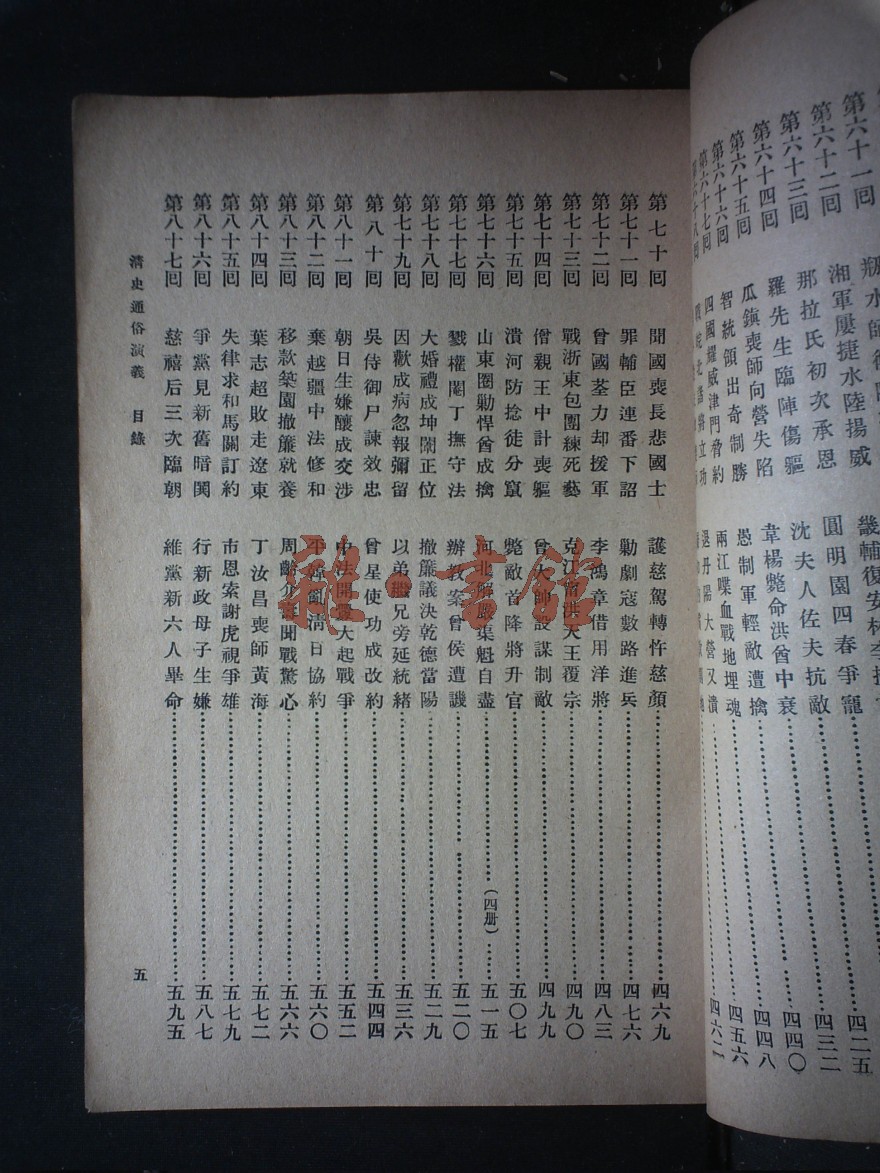 第六十一回 水師
第六十二回 湘軍屢捷水陸揚威 畿輔復安林李
第六十三回 那拉氏初次承恩 圓明園四春爭寵 四二五
第六十四回 羅先生臨陣傷軀 沈夫人佐夫抗敵 四三二
第六十五回 瓜鎮喪師向營失陷 韋楊斃命洪酋中衰 四四〇
第六十六回 智統領出奇制勝 愚制軍輕敵遭擒 四四八
第六十七回 四國耀威津門脅約 兩江喋血戰地埋魂 四五六
第六十八回 戰皖北諸將立功 退丹陽大營又潰 四六二
第七十回 聞國喪長悲國士 護慈駕轉忤慈顏 四六九
第七十一回 罪輔臣連番下詔 勦劇寇數路進兵 四七六
第七十二回 曾國荃力却援軍 李鴻章借用洋將 四八三
第七十三回 戰浙東包團練死藝 克江甯洪天王覆宗 四九〇
第七十四回 僧親王中計喪軀 曾大帥設謀制敵 四九九
第七十五回 潰河防捻徒分竄 斃敵首降將升官 五〇七
第七十六回 山東圈勦悍酋成擒 河北解嚴渠魁自盡 (四册) 五一五
第七十七回 戮權閹丁撫守法 辦教案曾侯遭譏 五二〇
第七十八回 大婚禮成坤闈正位 撤簾議決乾德當陽 五二九
第七十九回 因歡成病忽報彌留 以弟繼兄旁延統緒 五三六
第八十回 吳侍御尸諫效忠 曾星使功成改約 五四四
第八十一回 朝日生嫌釀成交涉 中法開釁大起戰爭 五五二
第八十二回 棄越疆中法修和 平韓亂清日協約 五六〇
第八十三回 移款築園撤簾就養 周齡介壽聞戰驚心 五六六
第八十四回 葉志超敗走遼東 丁汝昌喪師黃海 五七二
第八十五回 失律求和馬關訂約 市恩索謝虎視爭雄 五七九
第八十六回 爭黨見新舊暗鬨 行新政母子生嫌 五八七
第八十七回 慈禧后三次臨朝 維黨新六人畢命 五九五
清史通俗演義 目錄 五
雜·書館